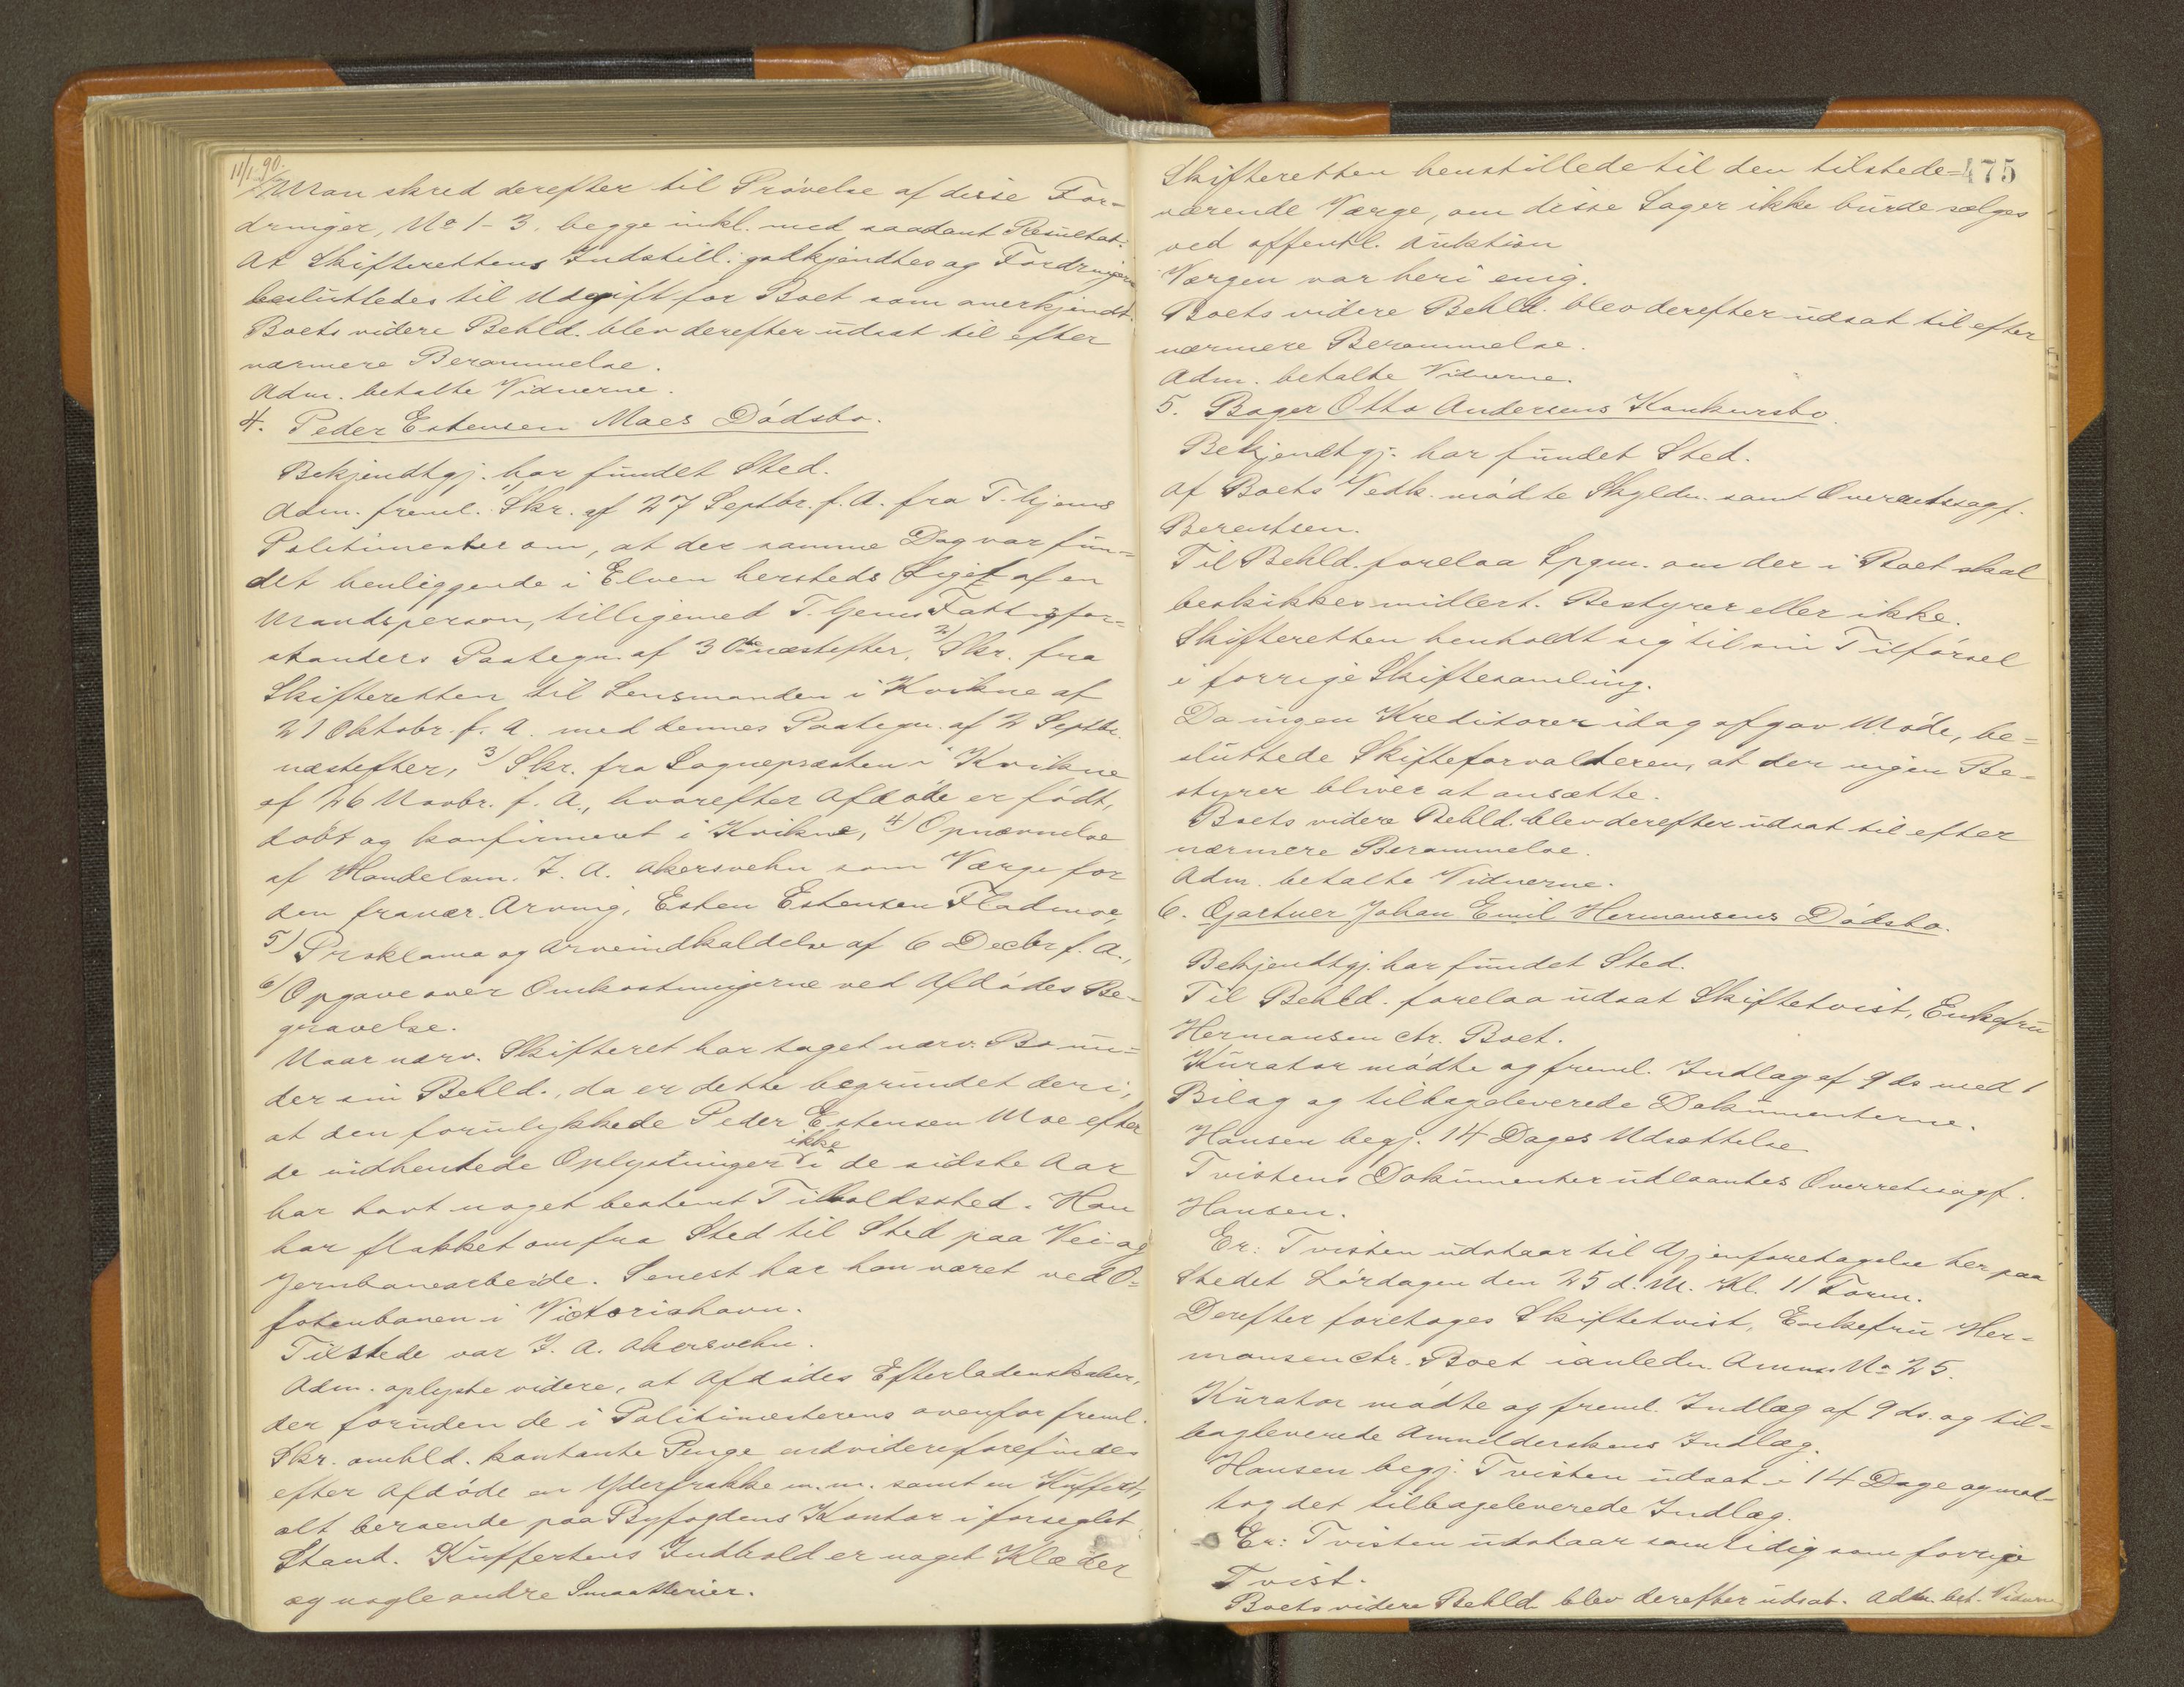 11/1 90.
Man skred derefter til Prøvelse af disse For=
dringer, No 1-3, begge inkl. med saadant Resultat:
At Skifterettens Indstill. godkjendtes og Fordringerne
besluttedes til Udgift for Boet som anerkjendt.
Boets videre Behld. blev derefter udsat til efter
nærmere Berammelse.
Adm. betalte Vidnerne.
4. Peder Estensen Moes Dødsbo.
Bekjendtgj. har fundet Sted.
Adm. freml. 1) Skr. af 27 Septbr. f. A. fra T.hjems
Politimester om, at der samme Dag var fun=
det henliggende i Elven hersteds Liget af en
Mandsperson, tilligemed T.hjems Fattigfor=
standers Paategn. af 30te næstefter, 2) Skr. fra
Skifteretten til Lensmanden i Kvikne af
21 Oktobr. f. A. med dennes Paategn. af 2 Septbr.
næstefter, 3) Skr. fra Sognepræsten i Kvikne
af 26 Novbr. f. A., hvorefter Afdøde er født,
døbt og konfirmeret i Kvikne, 4) Opnævnelse
af Handelsm. J. A. Akersvehn som Værge for
den fravær. Arving, Esten Estensen Fladmoe
5) Proklama og Arveindkaldelse af 6 Decbr f. A.,
6) Opgave over Omkostningerne ved Afdødes Be-
gravelse.
Naar nærv. Skifteret har taget nærv. Bo un=
der sin Behld., da er dette begrundet deri,
at den forulykkede Peder Estensen Moe efter
de indhentede Oplysninger ikke i de sidste Aar
har havt noget bestemt Tilholdssted. Han
har flakket om fra Sted til Sted paa Vei- og
Jernbanearbeide. Senest har han været ved O=
fotenbanen i Victoriahavn.
Tilstede var J. A. Akersvehn.
Adm. oplyste videre, at Afdødes Efterladenskaber,
der foruden de i Politimesterens ovenfor freml.
Skr. omhld. kontante Penge endvidere forefindes
efter Afdøde en Yderfrakke m.m. samt en Kuffert,
alt beroende paa Byfogdens Kontor i forseglet
Stand. Kuffertens Indhold er noget Klæder
og nogle andre Smaatterier.
475
Skifteretten henstillede til den tilstede=
værende Værge, om disse Sager ikke burde sælges
ved offentl. Auktion
Værgen var heri enig.
Boets videre Behld. blev derefter udsat til efter
nærmere Berammelse.
Adm. betalte Vidnerne.
5. Bager Otto Andersens Konkursbo.
Bekjendtgj. har fundet Sted.
Af Boets Vedk. mødte Skyldn. samt Overretssagf.
Berentsen.
Til Behld. forelaa Spgm. om der i Boet skal
beskikkes midlert. Bestyrer eller ikke.
Skifteretten henholdt sig til sin Tilførsel
i forrige Skiftesamling.
Da ingen Kreditorer idag afgav Møde, be=
sluttede Skifteforvalteren, at der ingen Be=
styrer bliver at ansætte.
Boets videre Behld. blev derefter udsat til efter
nærmere Berammelse.
Adm. betalte Vidnerne.
6. Gartner Johan Emil Hermansens Dødsbo.
Bekjendtgj. har fundet Sted.
Til Behld. forelaa udsat Skiftetvist, Enkefru
Hermansen ctr. Boet.
Kurator mødte og freml. Indlæg af 9 ds med 1
Bilag og tilbageleverede Dokumenterne.
Hansen begj. 14 Dages Udsættelse
Tvistens Dokumenter udlaantes Overretssagf.
Hansen.
Er: Tvisten udstaar til Gjenforetagelse her paa
Stedet Lørdagen den 25 d. M. Kl. 11 Form.
Derefter foretoges Skiftetvist, Enkefru Her=
mansen ctr. Boet ianledn. Anmn. No 25.
Kurator mødte og freml. Indlæg af 9 ds. og til=
bageleverede Anmelderskens Indlæg.
Hansen begj. Tvisten udsat i 14 Dage og mod=
tog det tilbageleverede Indlæg.
Er: Tvisten udstaar samtidig som forrige
Tvist.
Boets videre Behld. blev derefter udsat. Adm. bet. Vidnerne